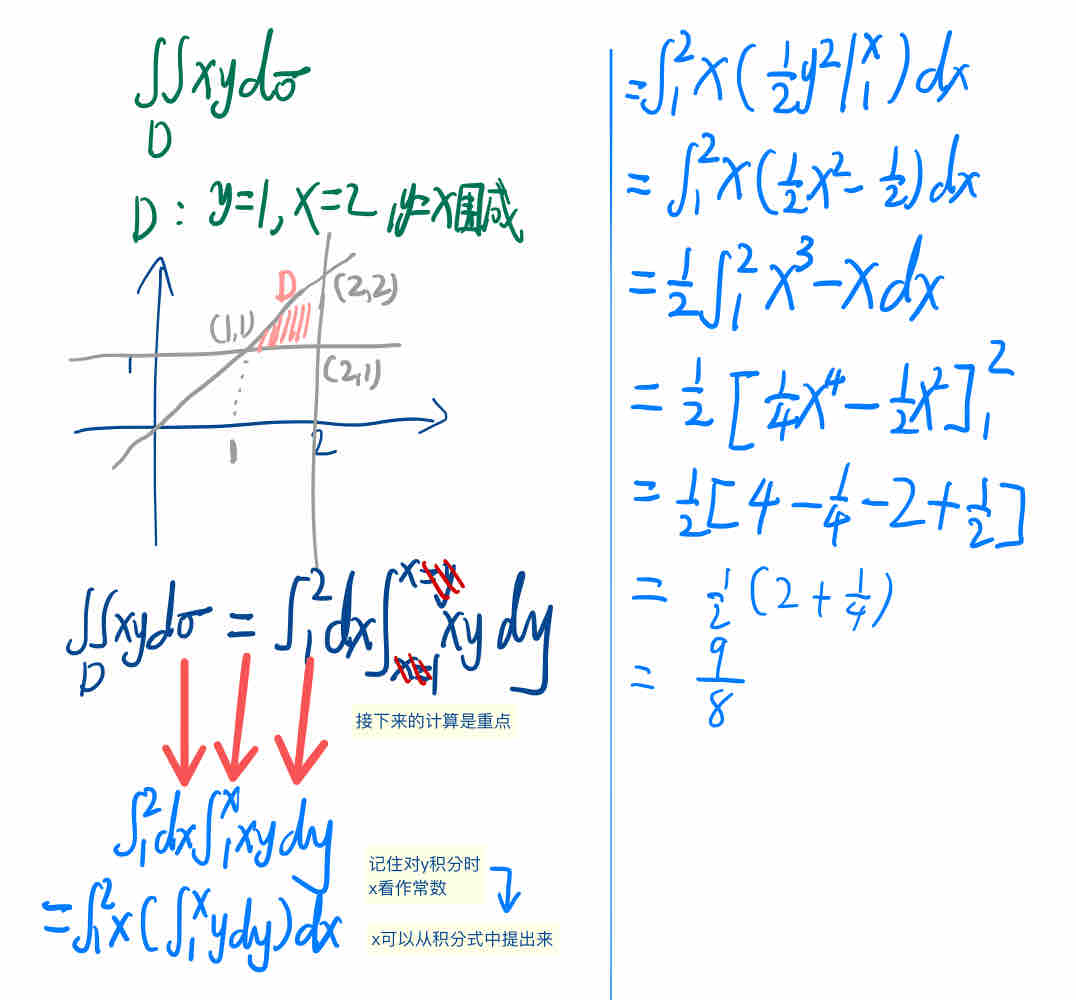 ∬xydσ
D
D: y=1, x=2, y=x围成
D
(2,2)
(1,1)
1
(2,1)
1
2
∬xydσ = ∫₁²dx∫xy dy
D
接下来的计算是重点
∫₁²dx∫₁ˣxydy
记住对y积分时
x看作常数
=∫₁²x(∫₁ˣydy)dx
x可以从积分式中提出来
=∫₁²x(½y²|₁ˣ)dx
=∫₁²x(½x²-½)dx
=½∫₁²x³-xdx
=½[¼x⁴-½x²]₁²
=½[4-¼-2+½]
=½(2+¼)
=9/8